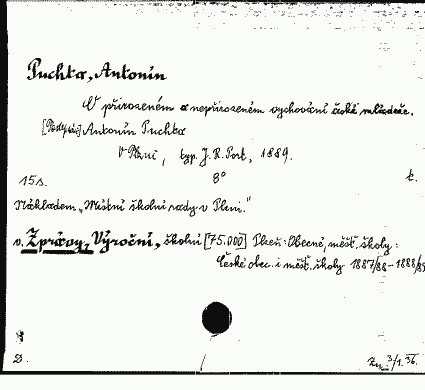 Puchta, Antonín
O přirozeném a nepřirozeném vychování české mládeže.
[Podepsán] Antonín Puchta
V Plzni, typ. J. R. Port, 1889.
15 s. 8° č.
Nákladem „Místní školní rady v Plzni."
v. Zprávy, Výroční, školní [75.000] Plzeň: Obecné, měšť. školy:
České obec. i měšť. školy 1887/88-1888/89
D. 3/1.36.